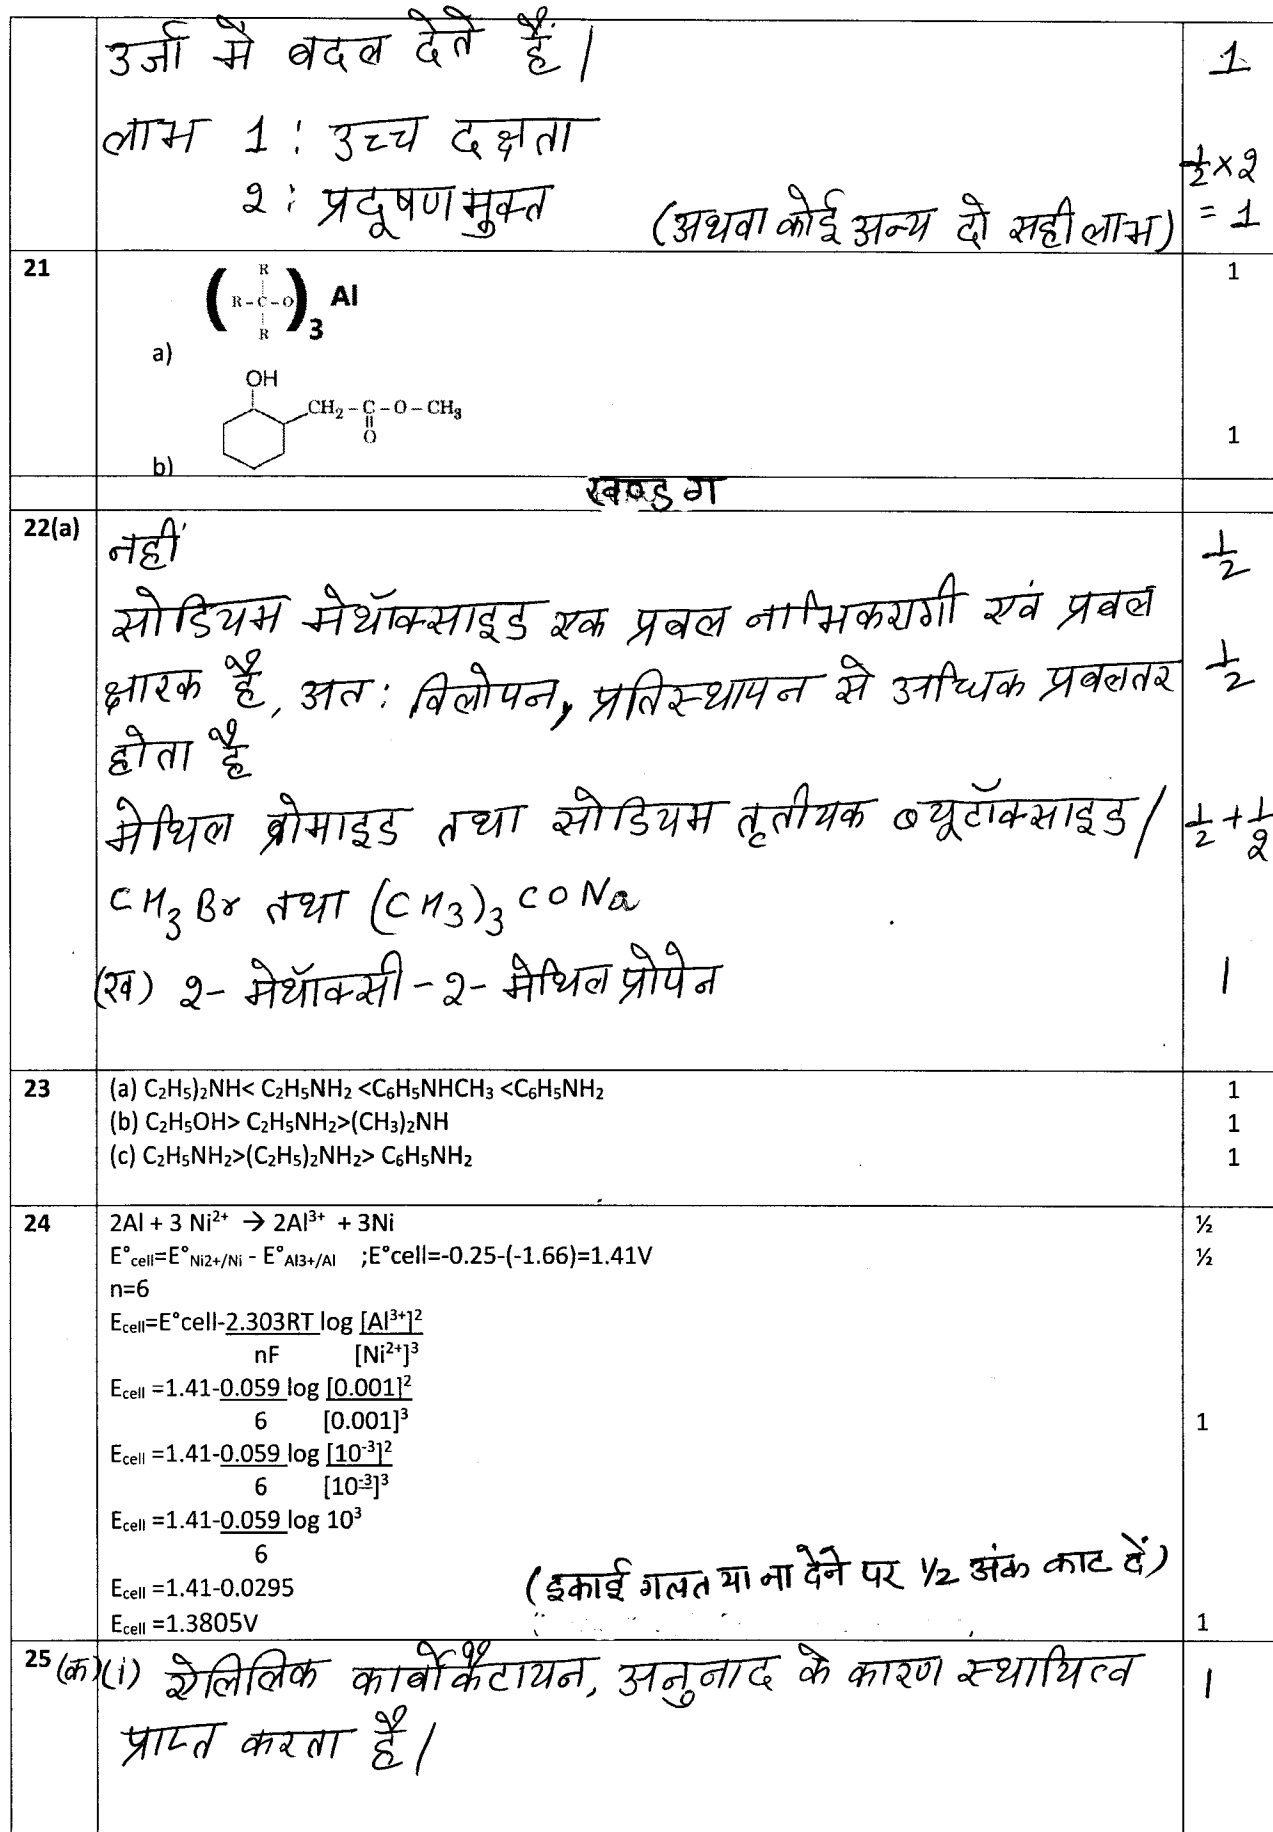 उर्जा में बदल देते हैं। 1
लाभ 1: उच्च दक्षता
2: प्रदूषण मुक्त ½ × 2
(अथवा कोई अन्य दो सही लाभ) = 1
21 1
a) (R-C-O)3 Al
R
R
OH
CH2-C-O-CH3
O
b) 1
खण्ड ग
22(a) नहीं ½
सोडियम मेथॉक्साइड एक प्रबल नाभिकरागी एवं प्रबल
क्षारक है, अत: विलोपन, प्रतिस्थापन से अधिक प्रबलतर ½
होता है
मेथिल ब्रोमाइड तथा सोडियम तृतीयक ब्यूटॉक्साइड/ ½+½
CH3Br तथा (CH3)3CONa
(ख) 2-मेथॉक्सी-2-मेथिल प्रोपेन 1
23 (a) C2H5)2NH< C2H5NH2 <C6H5NHCH3 <C6H5NH2 1
(b) C2H5OH> C2H5NH2>(CH3)2NH 1
(c) C2H5NH2>(C2H5)2NH2> C6H5NH2 1
24 2Al + 3 Ni2+ → 2Al3+ + 3Ni ½
E°cell=E°Ni2+/Ni - E°Al3+/Al ;E°cell=-0.25-(-1.66)=1.41V ½
n=6
Ecell=E°cell-2.303RT log [Al3+]2
nF [Ni2+]3
Ecell =1.41-0.059 log [0.001]2
6 [0.001]3 1
Ecell =1.41-0.059 log [10-3]2
6 [10-3]3
Ecell =1.41-0.059 log 103
6
Ecell =1.41-0.0295 (इकाई गलत या ना देने पर 1/2 अंक काट दें)
Ecell =1.3805V 1
25 (क)(i) ऐलिलिक कार्बोकैटायन, अनुनाद के कारण स्थायित्व 1
प्राप्त करता है।